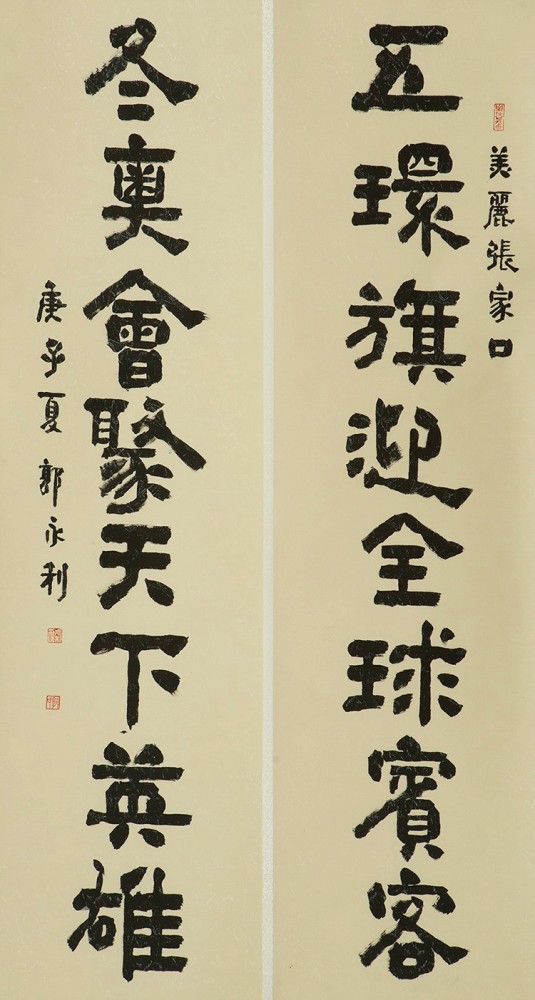 美麗張家口
五環旗迎全球賓客
冬奧會聚天下英雄
庚子夏 郭永利